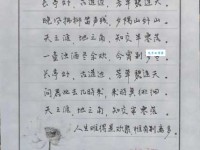 长亭外,古道边,芳草碧连天。
晚风拂柳笛声残,夕阳山外山。
天之涯,地之角,知交半零落。
一壶浊酒尽余欢,今宵别梦
长亭外,古道边,芳草碧连天。
问君此去几时来,来时莫徘徊。
天之涯,地之角,知交半零落。
人生难得是欢聚,有别离多。